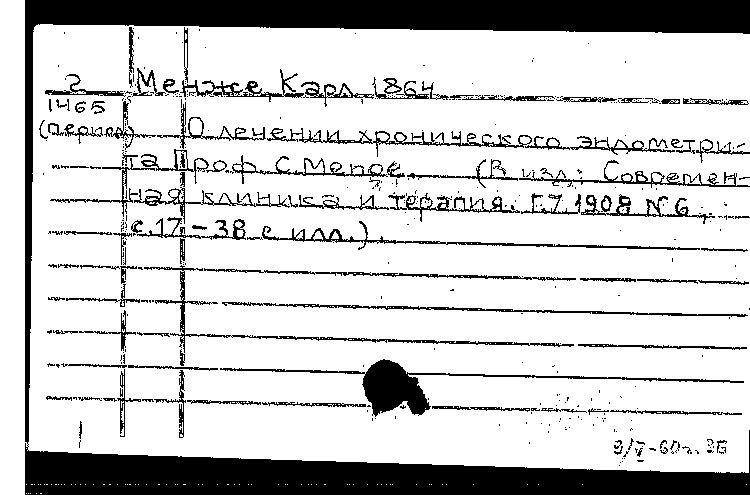 2 Менже, Карл, 1864
1465
(период) О лечении хронического эндометри-
та Проф. С. Менге. (В изд.: Современ-
ная клиника и терапия. Г.7. 1908 № 6,
с. 17 – 38 с илл.).
3/V-60г. ЗБ